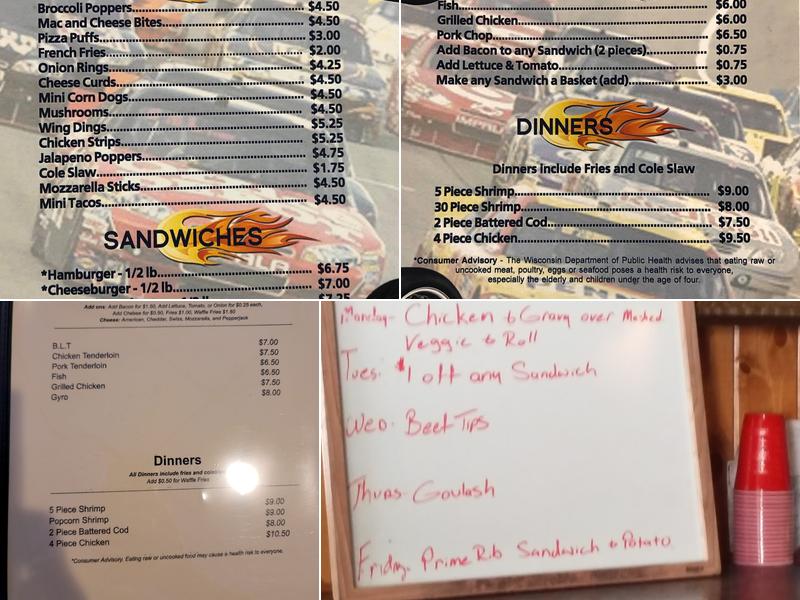 Broccoli Poppers $4.50
Mac and Cheese Bites $4.50
Pizza Puffs $3.00
French Fries $2.00
Onion Rings $4.25
Cheese Curds $4.50
Mini Corn Dogs $4.50
Mushrooms $4.50
Wing Dings $5.25
Chicken Strips $5.25
Jalapeno Poppers $4.75
Cole Slaw $1.75
Mozzarella Sticks $4.50
Mini Tacos $4.50
SANDWICHES
*Hamburger - 1/2 lb $6.75
*Cheeseburger - 1/2 lb $7.00
Fish $6.00
Grilled Chicken $6.00
Pork Chop $6.50
Add Bacon to any Sandwich (2 pieces) $0.75
Add Lettuce & Tomato $0.75
Make any Sandwich a Basket (add) $3.00
DINNERS
Dinners include Fries and Cole Slaw
5 Piece Shrimp $9.00
30 Piece Shrimp $8.00
2 Piece Battered Cod $7.50
4 Piece Chicken $9.50
*Consumer Advisory - The Wisconsin Department of Public Health advises that eating raw or
uncooked meat, poultry, eggs or seafood poses a health risk to everyone,
especially the elderly and children under the age of four.
Add ons: Add Bacon for $1.50, Add Lettuce, Tomato, or Onion for $0.25 each,
Add Cheese for $0.50, Fries $1.00, Waffle Fries $1.50
Cheese: American, Cheddar, Swiss, Mozzarella, and Pepperjack
B.L.T $7.00
Chicken Tenderloin $7.50
Pork Tenderloin $6.50
Fish $6.50
Grilled Chicken $7.50
Gyro $8.00
Dinners
All Dinners include fries and
Add $0.50 for Waffle Fries
5 Piece Shrimp $9.00
Popcorn Shrimp $9.00
2 Piece Battered Cod $8.00
4 Piece Chicken $10.50
*Consumer Advisory. Eating raw or uncooked food may cause a health risk to everyone.
Monday- Chicken & Gravy over Mashed
Veggie & Roll
Tues. $1 off any Sandwich
Wed. Beef Tips
Thurs. Goulash
Friday. Prime Rib Sandwich & Potato